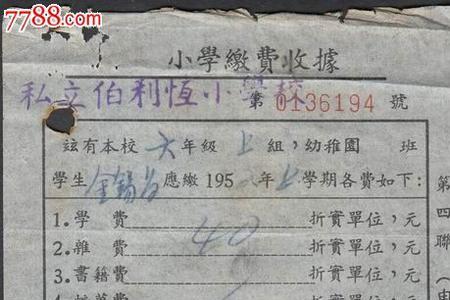 7788.com
小學繳費收據
私立伯利恒小學校
第 0136194 號
茲有本校 六 年級 上 組,幼稚園 班
學生 應繳195 年 上 學期各費如下:
1.學 費 折實單位,元
2.雜 費 40 折實單位,元
3.書籍費 折實單位,元
4. 費 折實單位,元
第四聯(